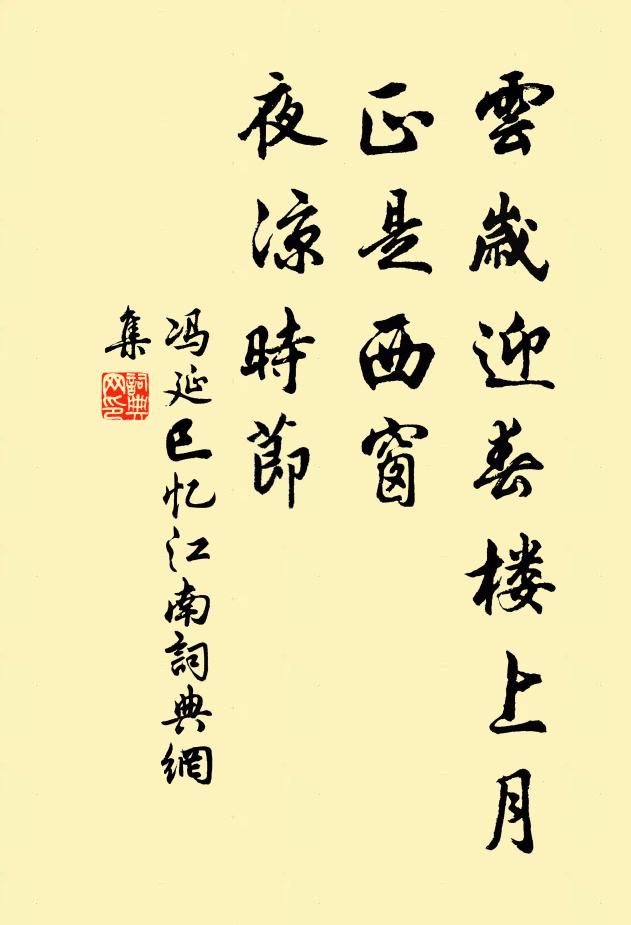 雲歲迎春楼上月
正是西窗
夜凉時節
冯延巳忆江南詞典網
集
詞典
网印